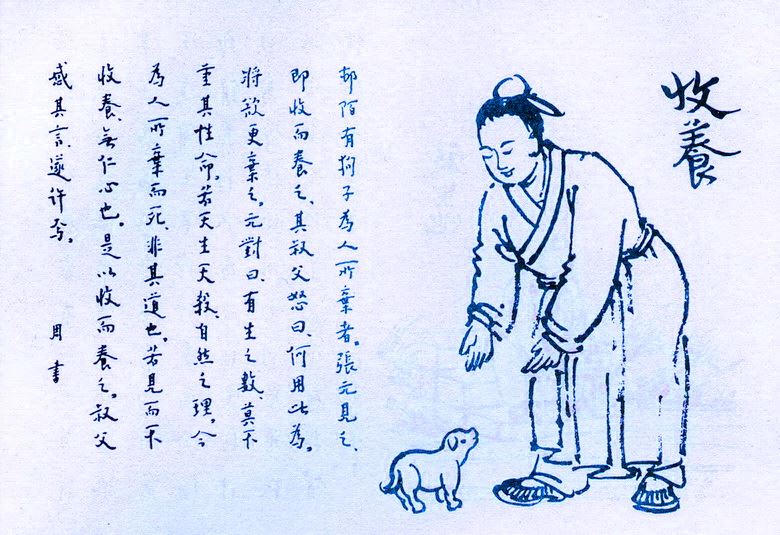 收養
邨陌有狗子為人所棄者。張元見之、
即收而養之、其叔父怒曰、何用此為。
將欲更棄之。元對曰、有生之數、莫不
重其性命。若天生天殺、自然之理。今
為人所棄而死、非其道也。若見而不
收養、無仁心也。是以收而養之。叔父
感其言、遂許焉。
周書